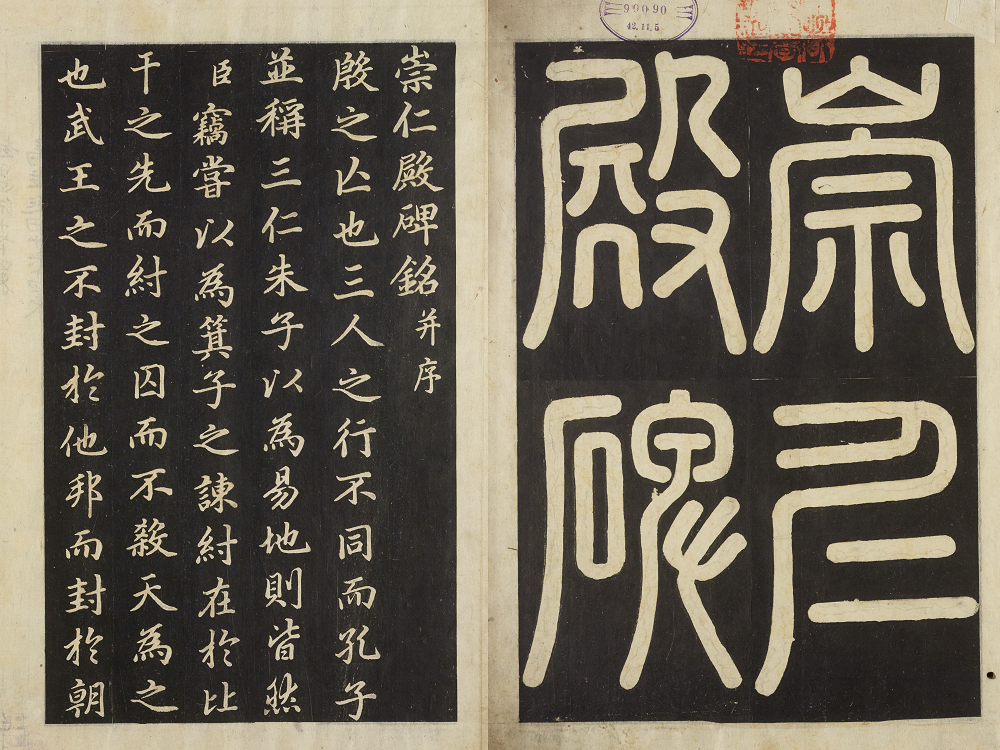 崇仁
殿碑
99090
42.11.5
崇仁殿碑銘并序
殷之亾也三人之行不同而孔子
並稱三仁朱子以為易地則皆然
臣竊嘗以為箕子之諫紂在於比
干之先而紂之囚而不殺天為之
也武王之不封於他邦而封於朝